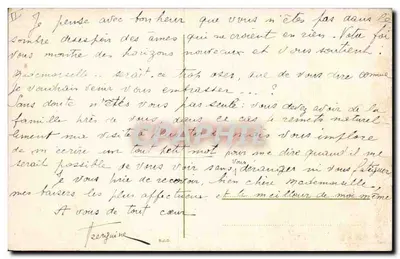 II Je pense avec bonheur que vous n'êtes pas dans le
sombre désespoir des âmes qui ne croient en rien. Votre foi
vous montre des horizons nouveaux et vous soutient.
Mademoiselle, serait-ce trop oser, que de vous dire comme
je voudrais venir vous embrasser ... ?
Sans doute n'êtes vous pas seule; vous devez avoir de la
famille près de vous, dans ce cas je remets naturel
lement ma visite mais vous implore
de m'écrire un tout petit mot pour me dire quand il me
serait possible de vous voir sans vous déranger ni vous fatiguer
Je vous prie de recevoir, bien chère Mademoiselle,
mes baisers les plus affectueux et le meilleur de moi même
A vous de tout cœur